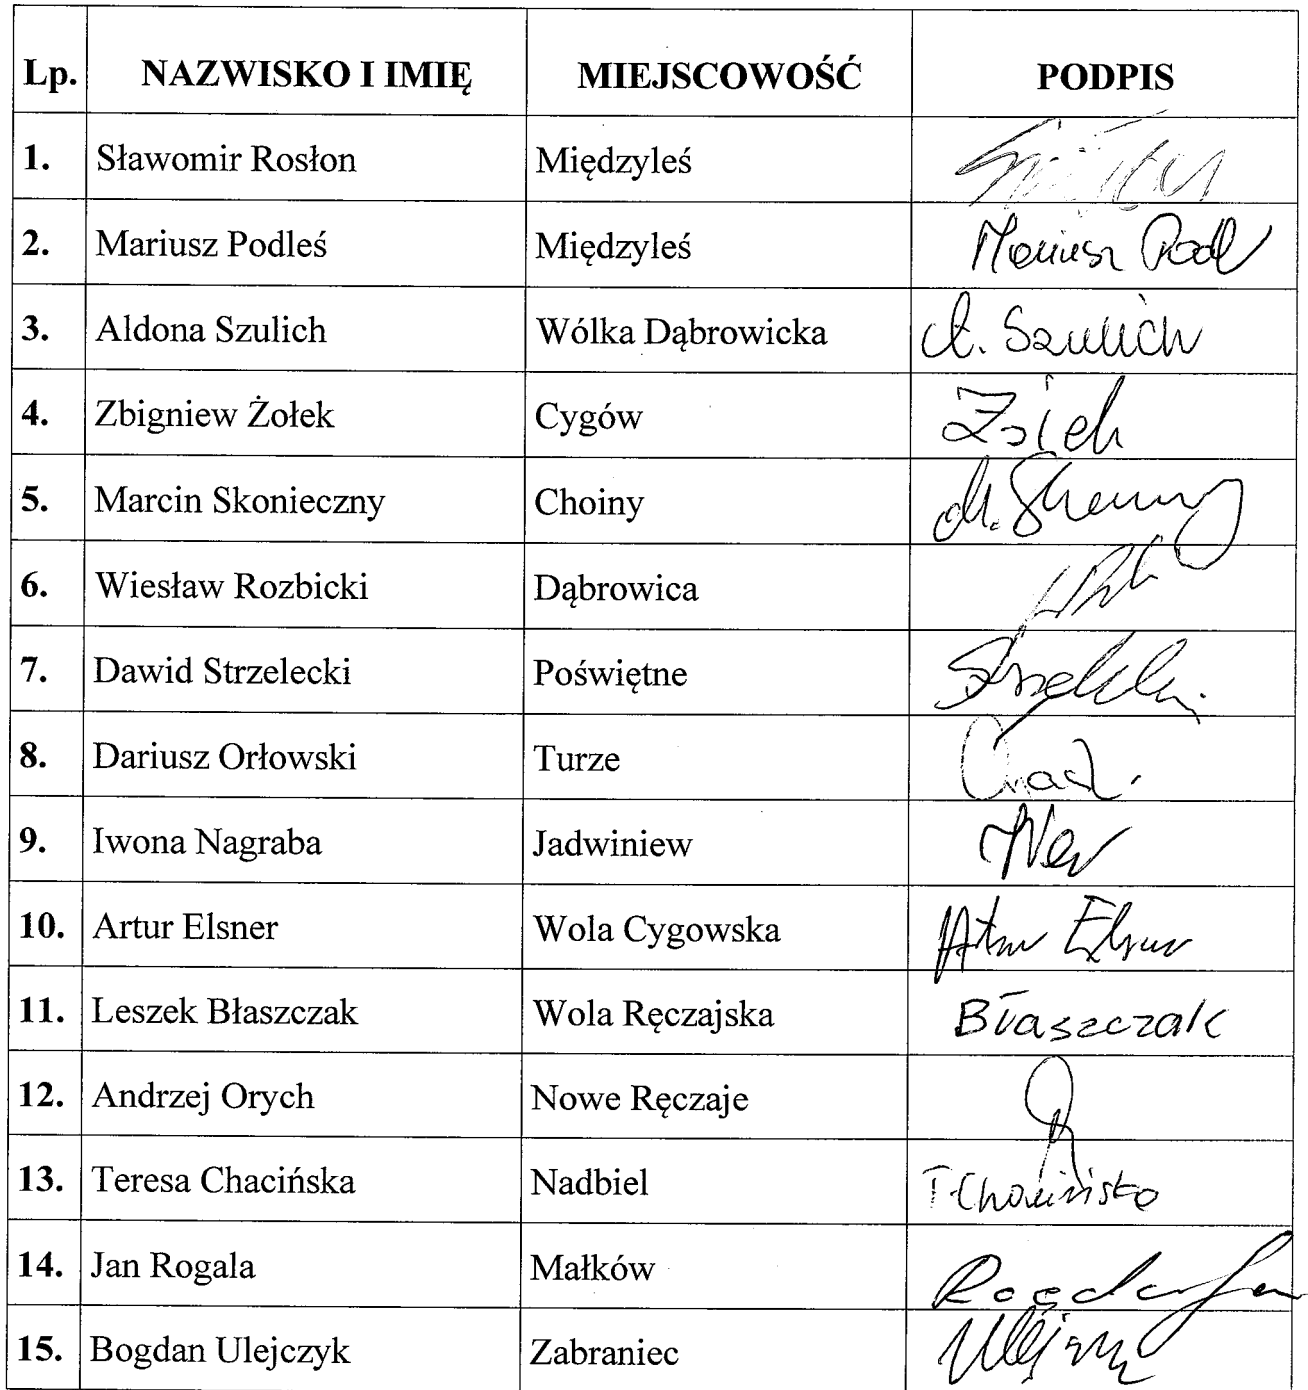 Lp. NAZWISKO I IMIĘ MIEJSCOWOŚĆ PODPIS
1. Sławomir Rosłon Międzyleś
2. Mariusz Podleś Międzyleś Mariusz Podl
3. Aldona Szulich Wólka Dąbrowicka A. Szulich
4. Zbigniew Żołek Cygów
5. Marcin Skonieczny Choiny
6. Wiesław Rozbicki Dąbrowica
7. Dawid Strzelecki Poświętne
8. Dariusz Orłowski Turze
9. Iwona Nagraba Jadwiniew
10. Artur Elsner Wola Cygowska Artur Elsner
11. Leszek Błaszczak Wola Ręczajska Błaszczak
12. Andrzej Orych Nowe Ręczaje
13. Teresa Chacińska Nadbiel T.Chacińska
14. Jan Rogala Małków Rogala Jan
15. Bogdan Ulejczyk Zabraniec